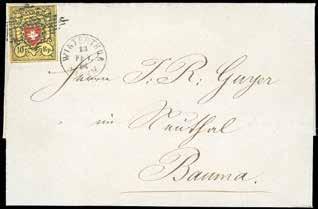 10 Rp.
WINTERTHUR
Herrn J. R: Guyer
im Neuthal
Bauma.